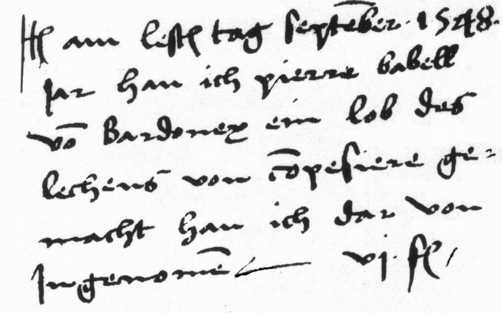 Itẽ am lesten tag septẽber · 1548 ·
Jar han ich pierre babell
võ Bardonex ein lob des
lechens von cõpesiere ge=
macht han ich dar von
Ingenomẽ vj · fl